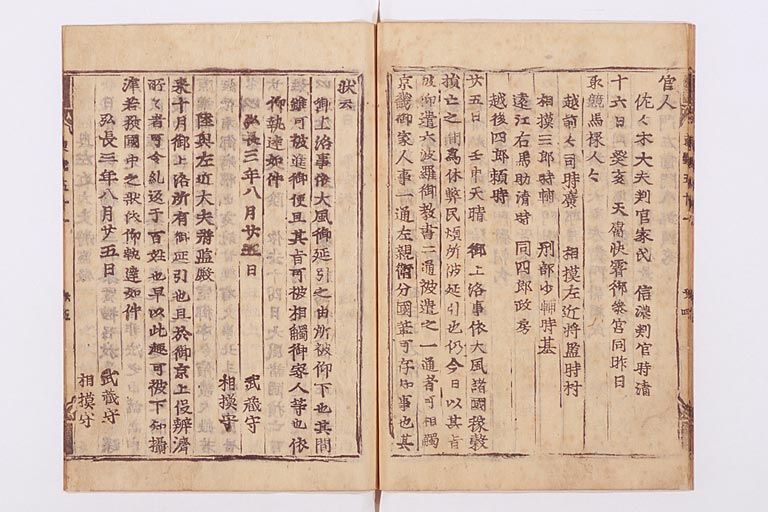 官人
佐々木大夫判官家氏 信濃判官時清
十六日癸亥 天霽快霽御参宮同昨日
取競馬禄人々
越前々司時廣 相摸左近将監時村
相摸三郎時輔 刑部少輔時基
遠江右馬助清時 同四郎政房
越後四郎頼時
廿五日 壬申天晴 御上洛事依大風諸國稼穀
損亡之間為休弊民煩所被延引也仍今日以其旨
被仰遣六波羅御教書二通被遣之一通者可相觸
京畿御家人事一通左親衛分國可存知事也其
状云
御上洛事依大風御延引之由所被仰下也其間
雖可被進御使且其旨可被相觸御家人等也依
仰執達如件
弘長三年八月廿五日 武蔵守
相摸守
陸奥左近大夫将監殿
来十月御上洛所有御延引也且於御京上役辨濟
所々者可令糺返于百姓也早以此趣可被下知攝
津若狭國中之状依仰執達如件
弘長三年八月廿五日 武蔵守
相摸守